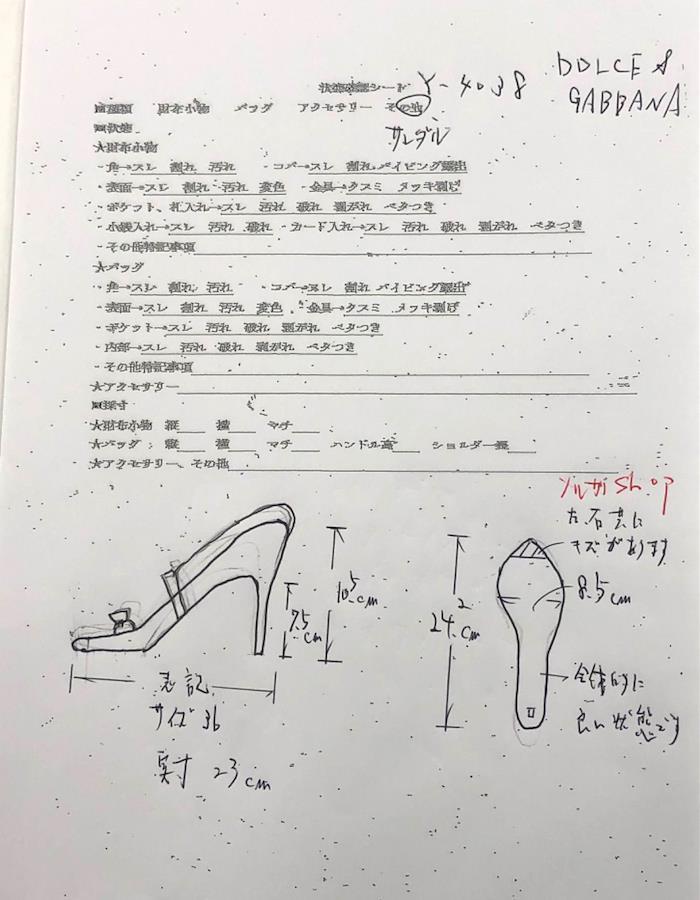 状態確認シート Y-4038 DOLCE &
GABBANA
■種類 財布小物 バッグ アクセサリー その他
サンダル
■状態
★財布小物
・角→スレ 割れ 汚れ ・コバ→スレ 割れ パイピング露出
・表面→スレ 割れ 汚れ 変色 ・金具→クスミ メッキ剥げ
・ポケット、札入れ→スレ 汚れ 破れ 剥がれ ベタつき
・小銭入れ→スレ 汚れ 破れ ・カード入れ→スレ 汚れ 破れ 剥がれ ベタつき
・その他特記事項
★バッグ
・角→スレ 割れ 汚れ ・コバ→スレ 割れ パイピング露出
・表面→スレ 割れ 汚れ 変色 ・金具→クスミ メッキ剥げ
・ポケット→スレ 汚れ 破れ 剥がれ ベタつき
・内部→スレ 汚れ 破れ 剥がれ ベタつき
・その他特記事項
★アクセサリー
■採寸
★財布小物 縦 横 マチ
★バッグ: 縦 横 マチ ハンドル高 ショルダー長
★アクセサリー、その他
ソルサ Shop
左右共に
キズがあります
7.5cm
10.5cm
24.2cm
8.5cm
表記
サイズ 36
実寸 23cm
全体的に
良い状態です